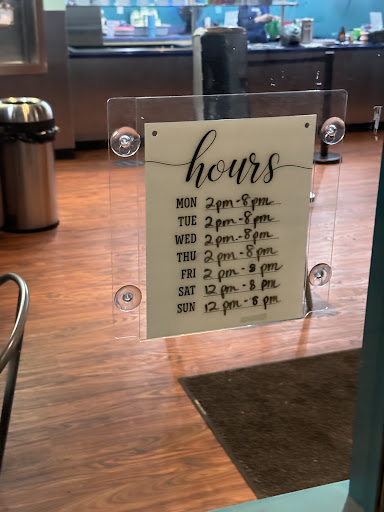 hours
MON 2pm-8pm
TUE 2pm-8pm
WED 2pm-8pm
THU 2pm-8pm
FRI 2pm-9pm
SAT 12pm-8pm
SUN 12pm-8pm